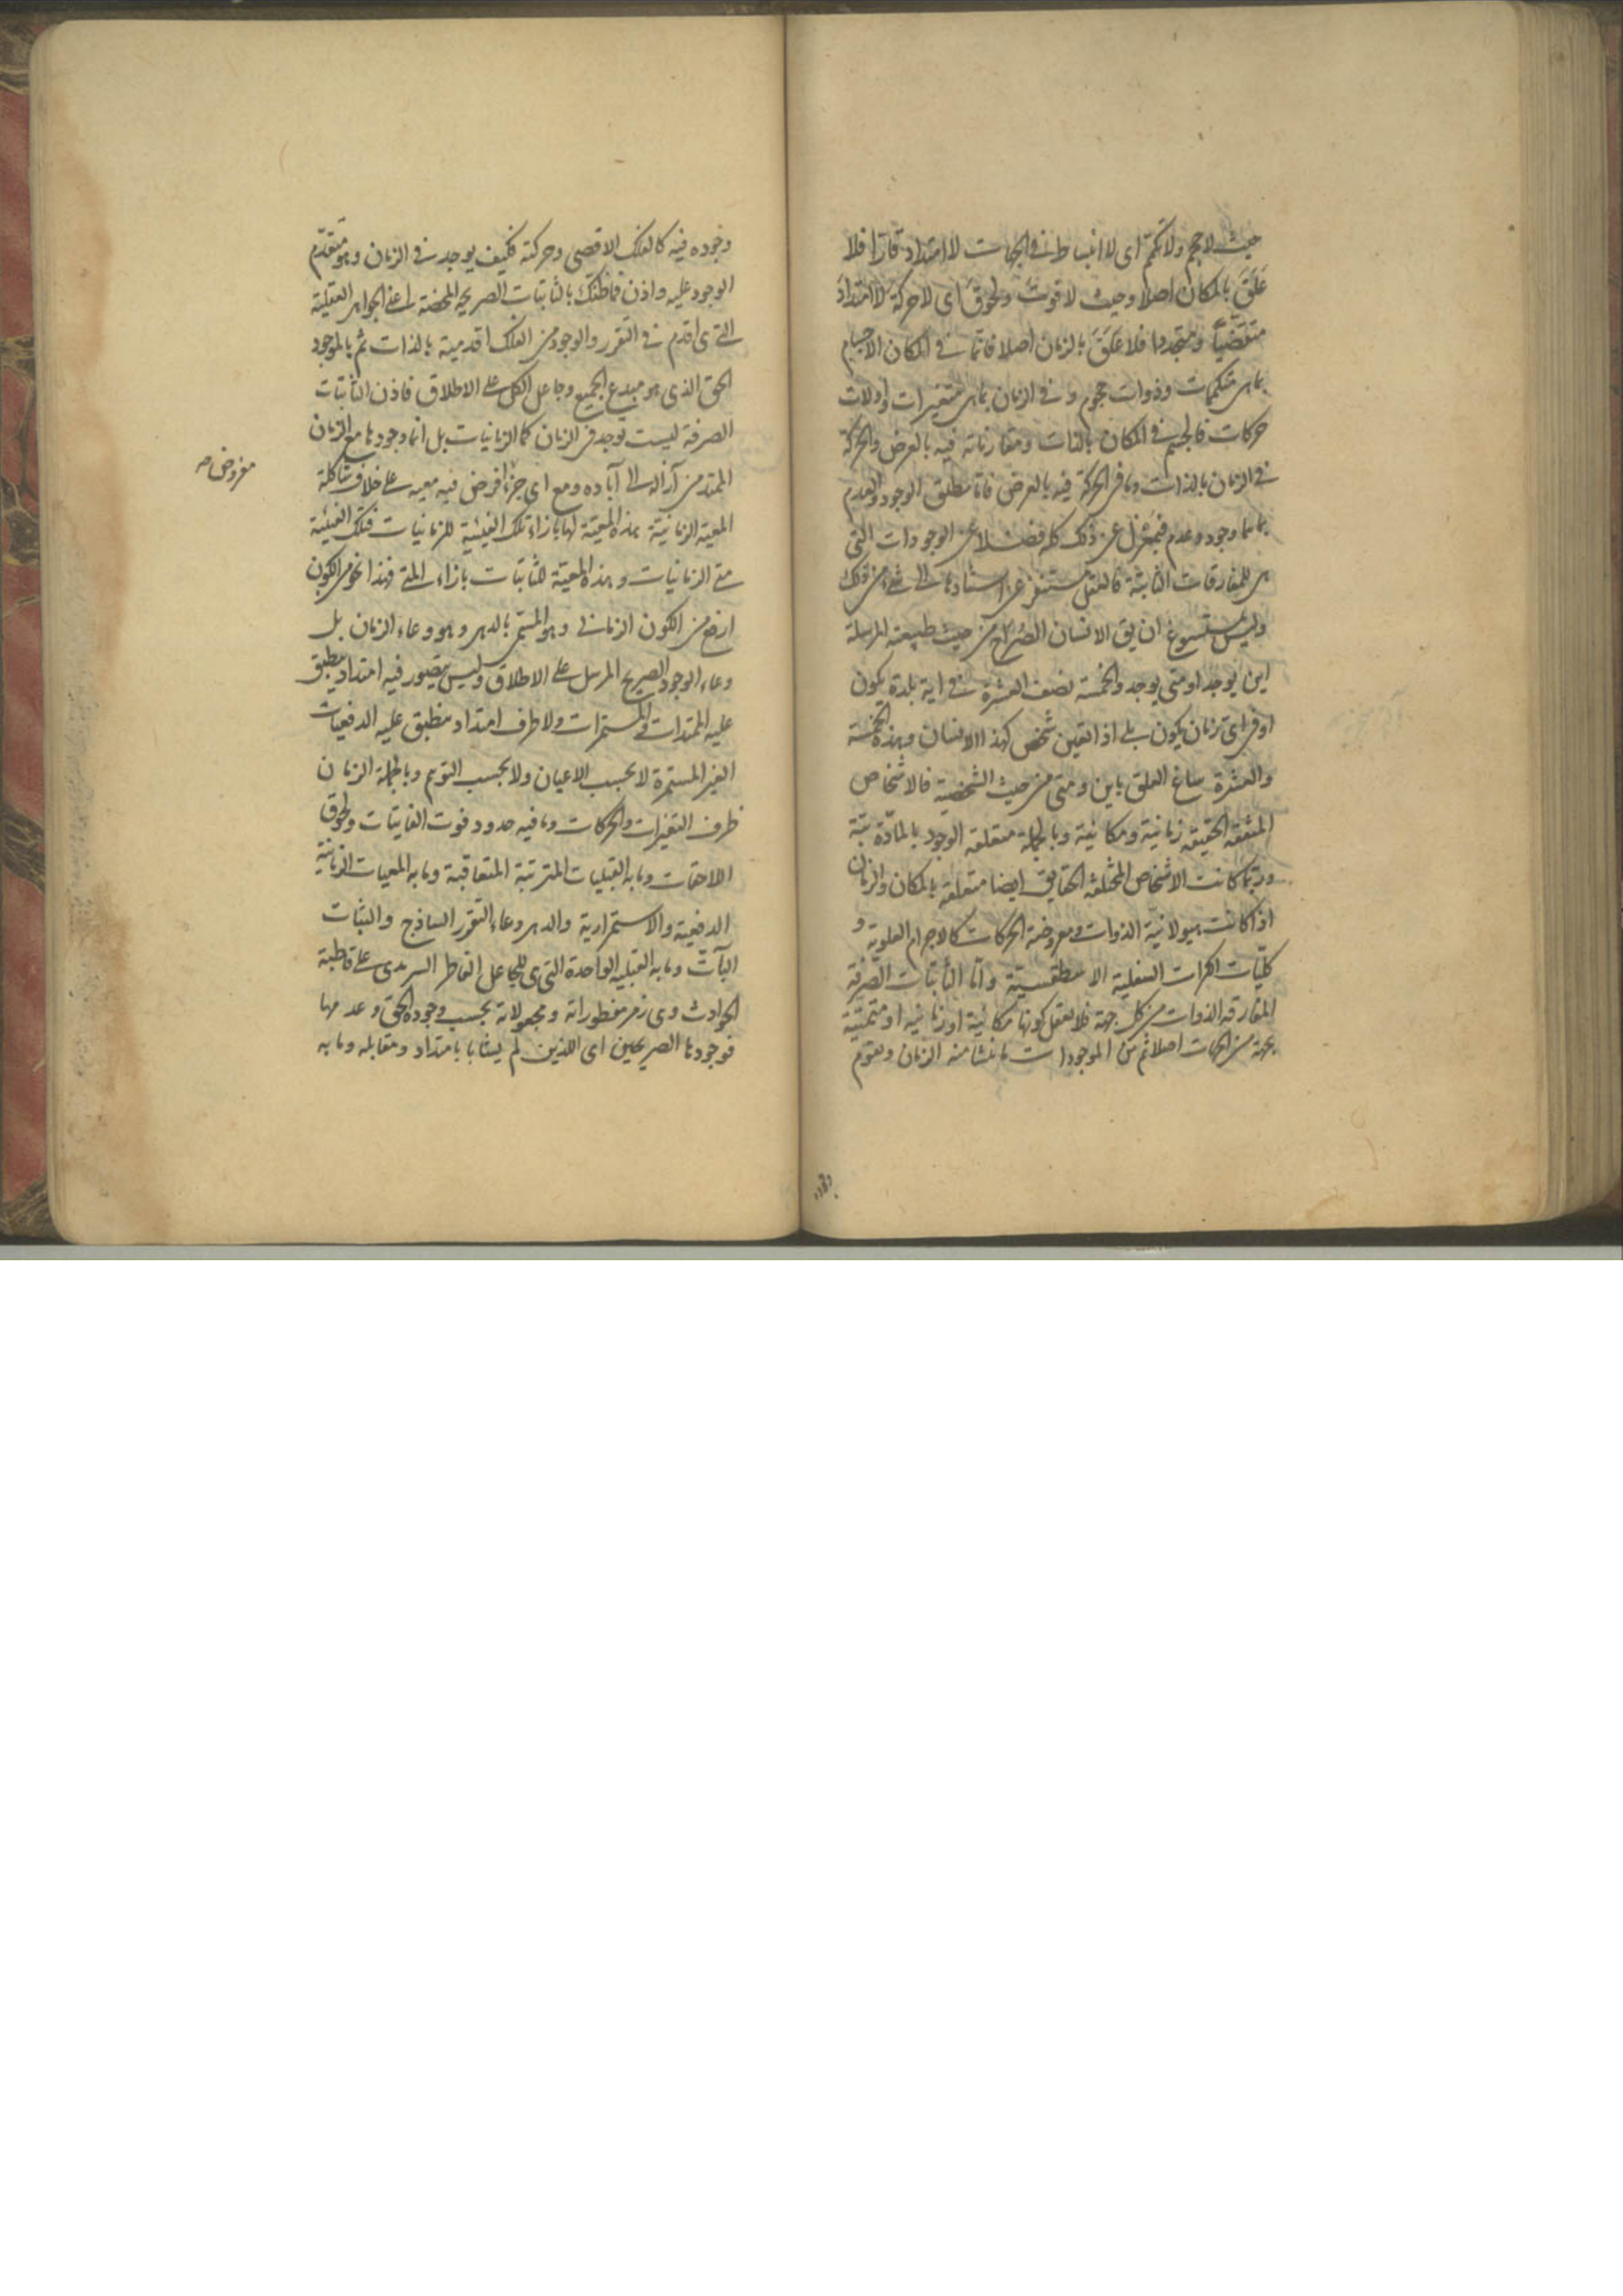 حيث لا حجم ولا تكمّم اى لا انبساط فى الجهات لا امتداد قارّا فلا
عَلَقَ بالمكان اصلا وحيث لا فوتَ ولحوقَ اى لا حركة لا امتدادَ
متقضّيا ومتجددا فلا عَلَقَ بالزمان اصلا فانما فى المكان الاجسام
بما هى متكممات وذوات حجوم و فى الزمان بما هى متغيرات واولات
حركات فالجسم فى المكان بالذات ومقارناته فيه بالعرض والحركة
فى الزمان بالذات وما فى الحركة فيه بالعرض فاما مطلق الوجود والعدم
بما هما وجود وعدم فبمعزل عن ذلك كله فضلا عن الوجودات التى
هى للمفارقات الثابتة فالعقل مستنفر عن اسنادها الى شىء من ذلك
وليس يستسيغ ان يق الانسان الصُراح من حيث طبيعته المرسلة
اين يوجد او متى يوجد والخمسة نصف العشرة فى اية بلدة يكون
او فى اى زمان يكون بلى اذا تعين شخص كهذا الانسان وهذه الخمسة
والعشرة ساغ العلق باين ومتى من حيث الشخصية فالاشخاص
المتفقة الحقيقة زمانية ومكانية وبالجملة متعلقة الوجود بالمادّة بتة
وربّما كانت الاشخاص المختلفة الحقايق ايضا متعلقة بالمكان والزمان
اذا كانت هيولانية الذوات ومعروضة الحركات كالاجرام العلوية و
كليّات الكرات السفلية الاسطقسيّة وامّا الثابتات الصّرفة
المفارقة الذوات من كل جهة فلا يعقل كونها مكانية او زمانية او متحيّثة
بجهة من الجهات اصلا ثم من الموجودات ما ينشأ منه الزمان ويتقوم
وجوده
وجوده فيه كالفلك الاقصى وحركته فكيف يوجد فى الزمان وهو متقدّم
الوجود عليه واذن فما ظنّك بالثابتات الصريحة المحضة اعنى الجواهر العقلية
التى هى اقدم فى التقرر والوجود من الفلك اقدمية بالذات ثم بالموجود
الحق الذى هو مبدع الجميع وجاعل الكل على الاطلاق فاذن الثابتات
الصرفة ليست توجد فى الزمان كما الزمانيات بل انما وجودها مع الزمان
الممتد من آزاله الى آباده ومع اى جزء افرض فيه معيه على خلاف شاكلة
مفروض صه
المعية الزمانية هذه المعيّة لها بازاء تلك الفيئية للزمانيات فتلك الفيئية
متى الزمانيات وهذه المعيّة للثابتات بازاء المتى فهذا نحو من الكون
ارفع من الكون الزمانى وهو المسمّى بالدهر وهو وعاء الزمان بل
وعاء الوجود الصريح المرسل على الاطلاق وليس يتصور فيه امتداد ينطبق
عليه الممتدات والمستمرات ولا طرف امتداد منطبق عليه الدفعيات
الغير المستمرة لا بحسب الاعيان ولا بحسب التوهم وبالجملة الزمان
ظرف التغيّرات والحركات وما فيه حدود فوت الفايتات ولحوق
اللاحقات وما به القبليات المترتبة المتعاقبة وما به المعيات الزمانية
الدفعية والاستمرارية والدهر وعاء التقرر الساذج والثبات
الباتّ وما به القبلية الواحدة التى هى للجاعل الفاطر السرمدى على قاطبة
الحوادث وهى زمر مفطوراته ومجعولاته بحسب وجوده الحق وعدمها
فوجودها الصريحين اى اللذين لم يشابا بامتداد ومقابله وما به